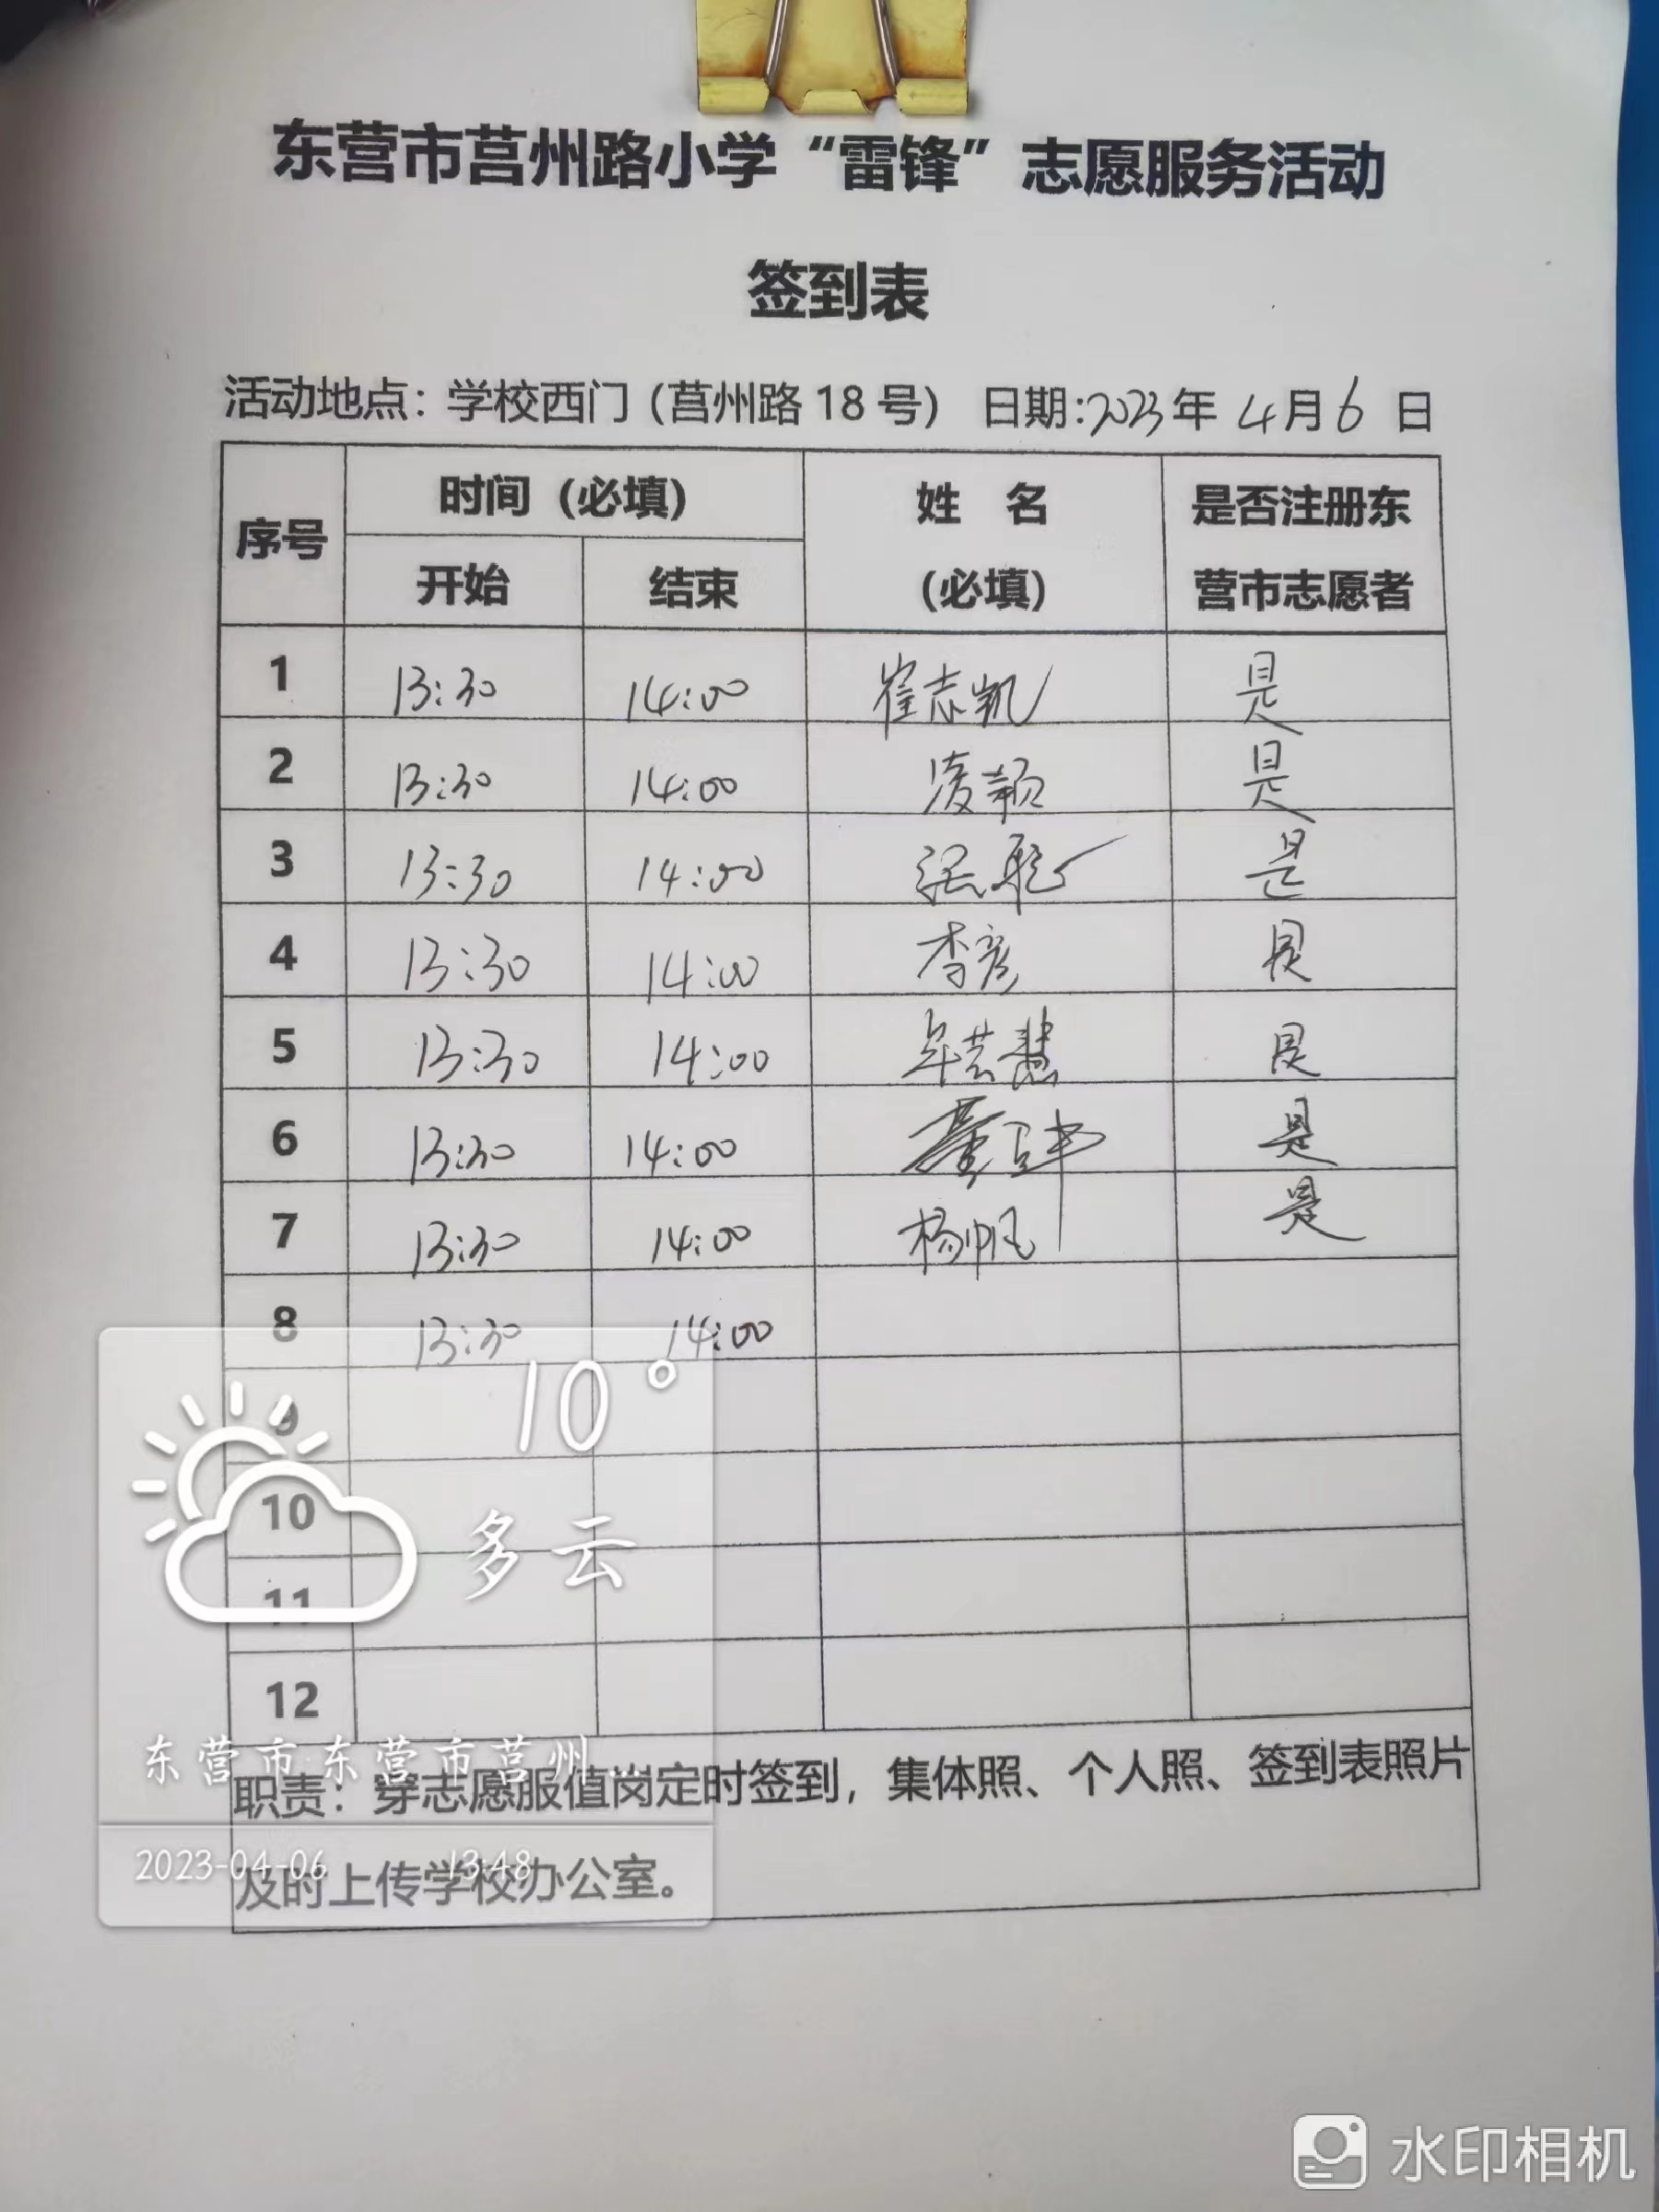 东营市莒州路小学“雷锋”志愿服务活动
签到表
活动地点：学校西门（莒州路 18 号） 日期:2023年 4月6 日
序号 时间（必填） 姓 名（必填） 是否注册东营市志愿者
开始 结束
1 13:30 14:00 崔志凯 是
2 13:30 14:00 凌颖 是
3 13:30 14:00 是
4 13:30 14:00 李彦 是
5 13:30 14:00 牟芸慧 是
6 13:30 14:00 董 是
7 13:30 14:00 杨帆 是
8 13:30 14:00
9
10
11
12
职责：穿志愿服值岗定时签到，集体照、个人照、签到表照片
及时上传学校办公室。
10°
多云
东营市·东营市莒州...
2023-04-06 13:48
水印相机